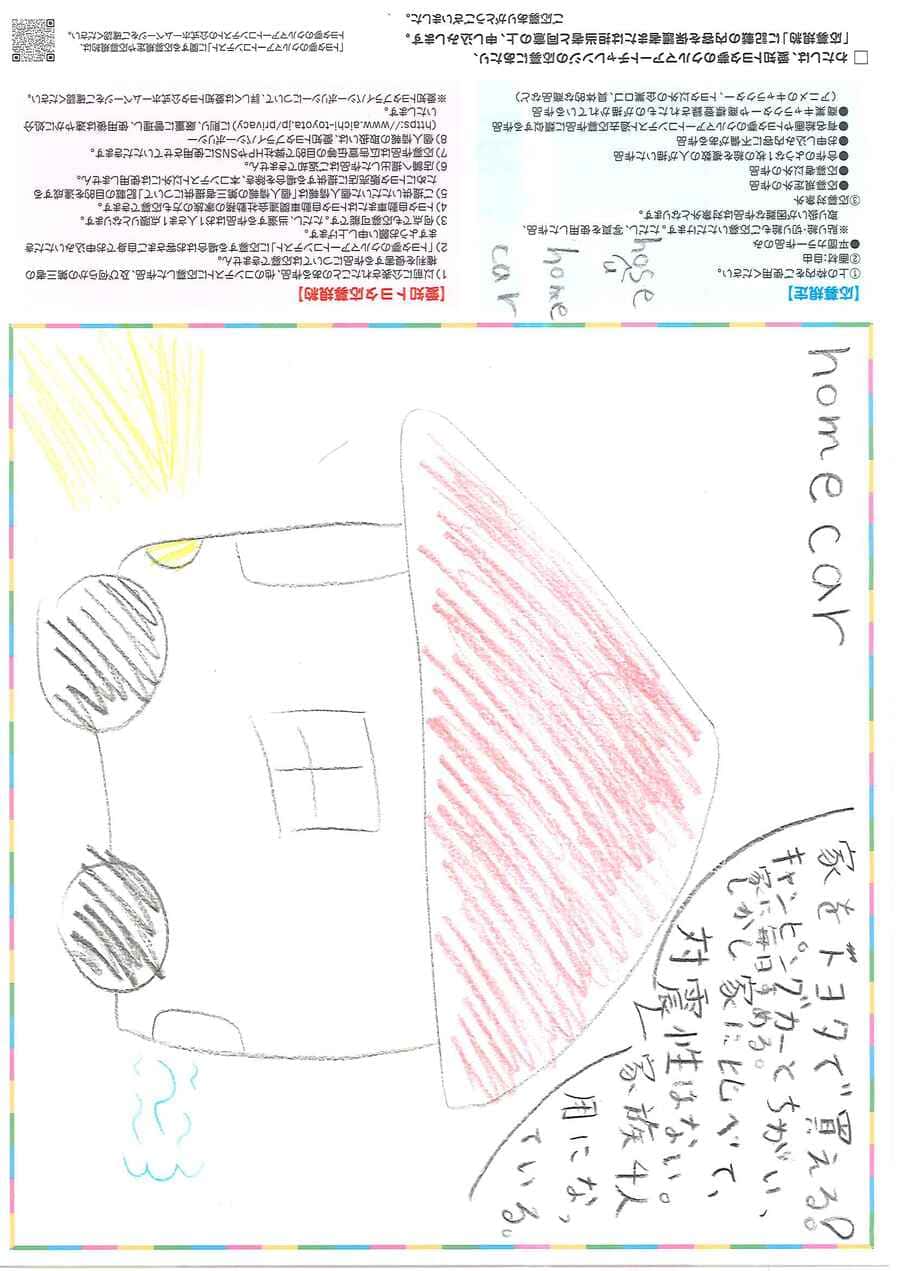 home car
家をトヨタで買える。
キャンピングカーとちがい、
家に毎日すめる。
しかし家に比べて、
対震性はない。
家族4人
用になっ
ている。
hose
u
home
car
【応募規定】
①上の枠内をご使用ください。
②画材:自由
●平面カラー作品のみ
※貼り絵・切り絵もご応募いただけます。ただし、写真を使用した作品、
取り扱いが困難な作品は対象外となります。
③応募対象外
●応募規定外の作品
●応募者以外の作品
●合作のような1枚の絵を複数の人が描いた作品
●お申し込み内容に不備がある作品
●有名絵画やトヨタ夢のクルマアートコンテスト過去応募作品に類似する作品
●商業キャラクターや商標登録されたものが描かれている作品
(アニメのキャラクター、トヨタ以外の企業ロゴ、具体的な商品など)
【愛知トヨタ応募規約】
1)以前に公表されたことのある作品、他のコンテストに応募した作品、及び何らかの第三者の
権利を侵害する作品については応募できません。
2)「トヨタ夢のクルマアートコンテスト」に応募する場合はお客さまご自身でお申込みいただき
ますようお願い申し上げます。
3)何点でも応募可能です。ただし、当選する作品はお1人さま1点限りとなります。
4)トヨタ自動車またはトヨタ自動車関連会社勤務の家族の方も応募できます。
5)ご提供いただいた個人情報は「個人情報の第三者提供について」記載の目的を達成する
ためにトヨタ販売店に提供する場合を除き、本コンテスト以外には使用しません。
6)店舗へ提出した作品はご返却できません。
7)応募作品は広告宣伝等の目的で弊社HPやSNSに使用させていただきます。
8)個人情報の取扱いは、愛知トヨタプライバシーポリシー
(https://www.aichi-toyota.jp/privacy)に則り、厳重に管理し、使用後は速やかに処分
いたします。
※愛知トヨタプライバシーポリシーについて、詳しくは愛知トヨタ公式ホームページをご確認ください。
□ わたしは、愛知トヨタ夢のクルマアートチャレンジの応募にあたり、
「応募規約」に記載の内容を保護者または担当者と同意の上、申し込みします。
ご応募ありがとうございました。
「トヨタ夢のクルマアートコンテスト」に関する応募規定や応募規約は、
トヨタ夢のクルマアートコンテストの公式ホームページをご確認ください。